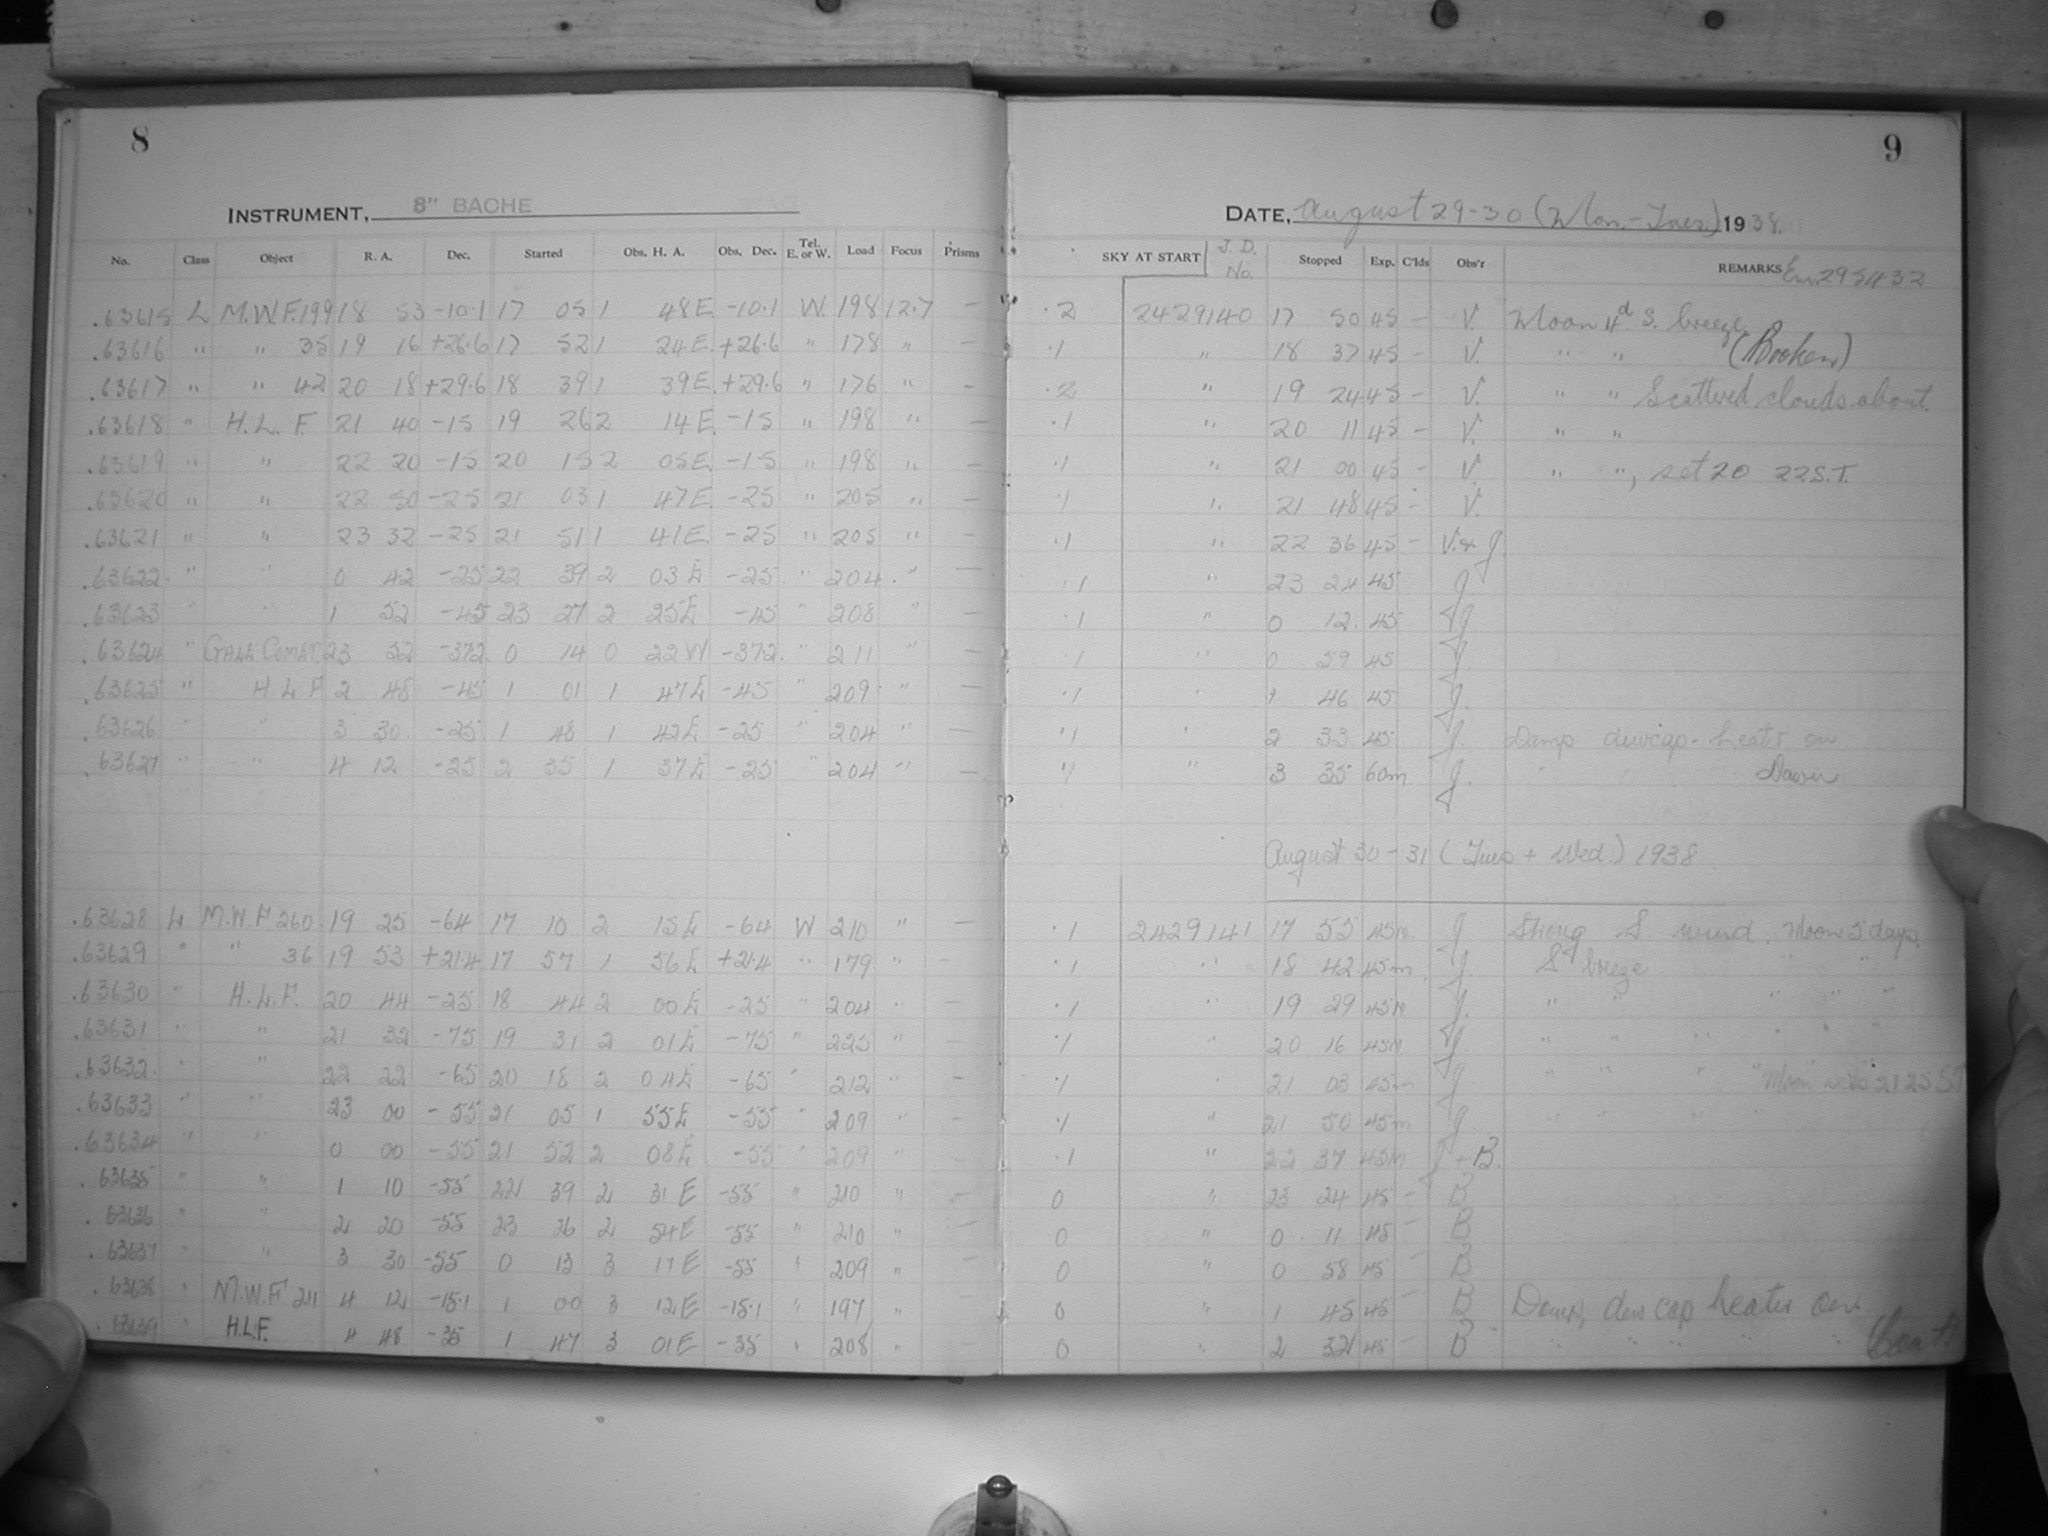 8
INSTRUMENT, 8" BACHE
No. Class Object R. A. Dec. Started Obs. H. A. Obs. Dec. Tel. E. or W. Load Focus Prisms
.63615 L M.W.F. 199 18 53 -10.1 17 05 1 48E -10.1 W. 198 12.7 —
.63616 " " 35 19 16 +26.6 17 52 1 24E. +26.6 " 178 " —
.63617 " " 42 20 18 +29.6 18 39 1 39E. +29.6 " 176 " —
.63618 " H. L. F. 21 40 -15 19 26 2 14E. -15 " 198 " —
.63619 " " 22 20 -15 20 15 2 05E. -15 " 198 " —
.63620 " " 22 50 -25 21 03 1 47E. -25 " 205 " —
.63621 " " 23 32 -25 21 51 1 41E. -25 " 205 " —
.63622 " " 0 42 -25 22 39 2 03E -25 " 204 " —
.63623 " " 1 52 -45 23 27 2 25E -45 " 208 " —
.63624 " GALE COMET 23 52 -37.2 0 14 0 22W -37.2 " 211 " —
.63625 " H L F 2 48 -45 1 01 1 47E -45 " 209 " —
.63626 " " 3 30 -25 1 48 1 42E -25 " 204 " —
.63627 " " 4 12 -25 2 35 1 37E -25 " 204 " —
.63628 L M.W.F 260 19 25 -64 17 10 2 15E -64 W 210 " —
.63629 " " 36 19 53 +21.4 17 57 1 56E +21.4 " 179 " —
.63630 " H.L.F. 20 44 -25 18 44 2 00E -25 " 204 " —
.63631 " " 21 32 -75 19 31 2 01E -75 " 225 " —
.63632 " " 22 22 -65 20 18 2 04E -65 " 212 " —
.63633 " " 23 00 -55 21 05 1 55E -55 " 209 " —
.63634 " " 0 00 -55 21 52 2 08E -55 " 209 " —
.63635 " " 1 10 -55 22 39 2 31E -55 " 210 " —
.63636 " " 2 20 -55 23 26 2 54E -55 " 210 " —
.63637 " " 3 30 -55 0 13 3 17E -55 " 209 " —
.63638 " M.W.F 211 4 12 -15.1 1 00 3 12E -15.1 " 197 " —
.63639 " H.L.F. 4 48 -35 1 47 3 01E -35 " 208 " —
9
DATE, August 29-30 (Mon.-Tues.) 1938
SKY AT START J. D. No. Stopped Exp. C'lds Obs'r REMARKS
.2 2429140 17 50 45 — V. Moon 4d S. breeze
.1 " 18 37 45 — V. " "
.2 " 19 24 45 — V. " " Scattered clouds about.
.1 " 20 11 45 — V. " "
.1 " 21 00 45 — V. " ", set 20 22 S.T.
.1 " 21 48 45 — V.
.1 " 22 36 45 — V. & J
.1 " 23 24 45 J
.1 " 0 12 45 J
.1 " 0 59 45 J.
.1 " 1 46 45 J.
.1 " 2 33 45 J. Damp dewcap-heater on
.1 " 3 35 60m J. Dawn
August 30-31 (Tues + Wed.) 1938
.1 2429141 17 55 45m J Strong S. wind. Moon 5 days.
.1 " 18 42 45m J. S breeze " "
.1 " 19 29 45m J. " " " " "
.1 " 20 16 45m J. " " " " "
.1 " 21 03 45m J " " " " Moon sets 21 25 ST
.1 " 21 50 45m J " " " "
.1 " 22 37 45m J + B.
0 " 23 24 45 — B
0 " 0 11 45 — B
0 " 0 58 45 — B
0 " 1 45 45 — B Damp, dew cap heater on
0 " 2 32 45 — B " " " " "